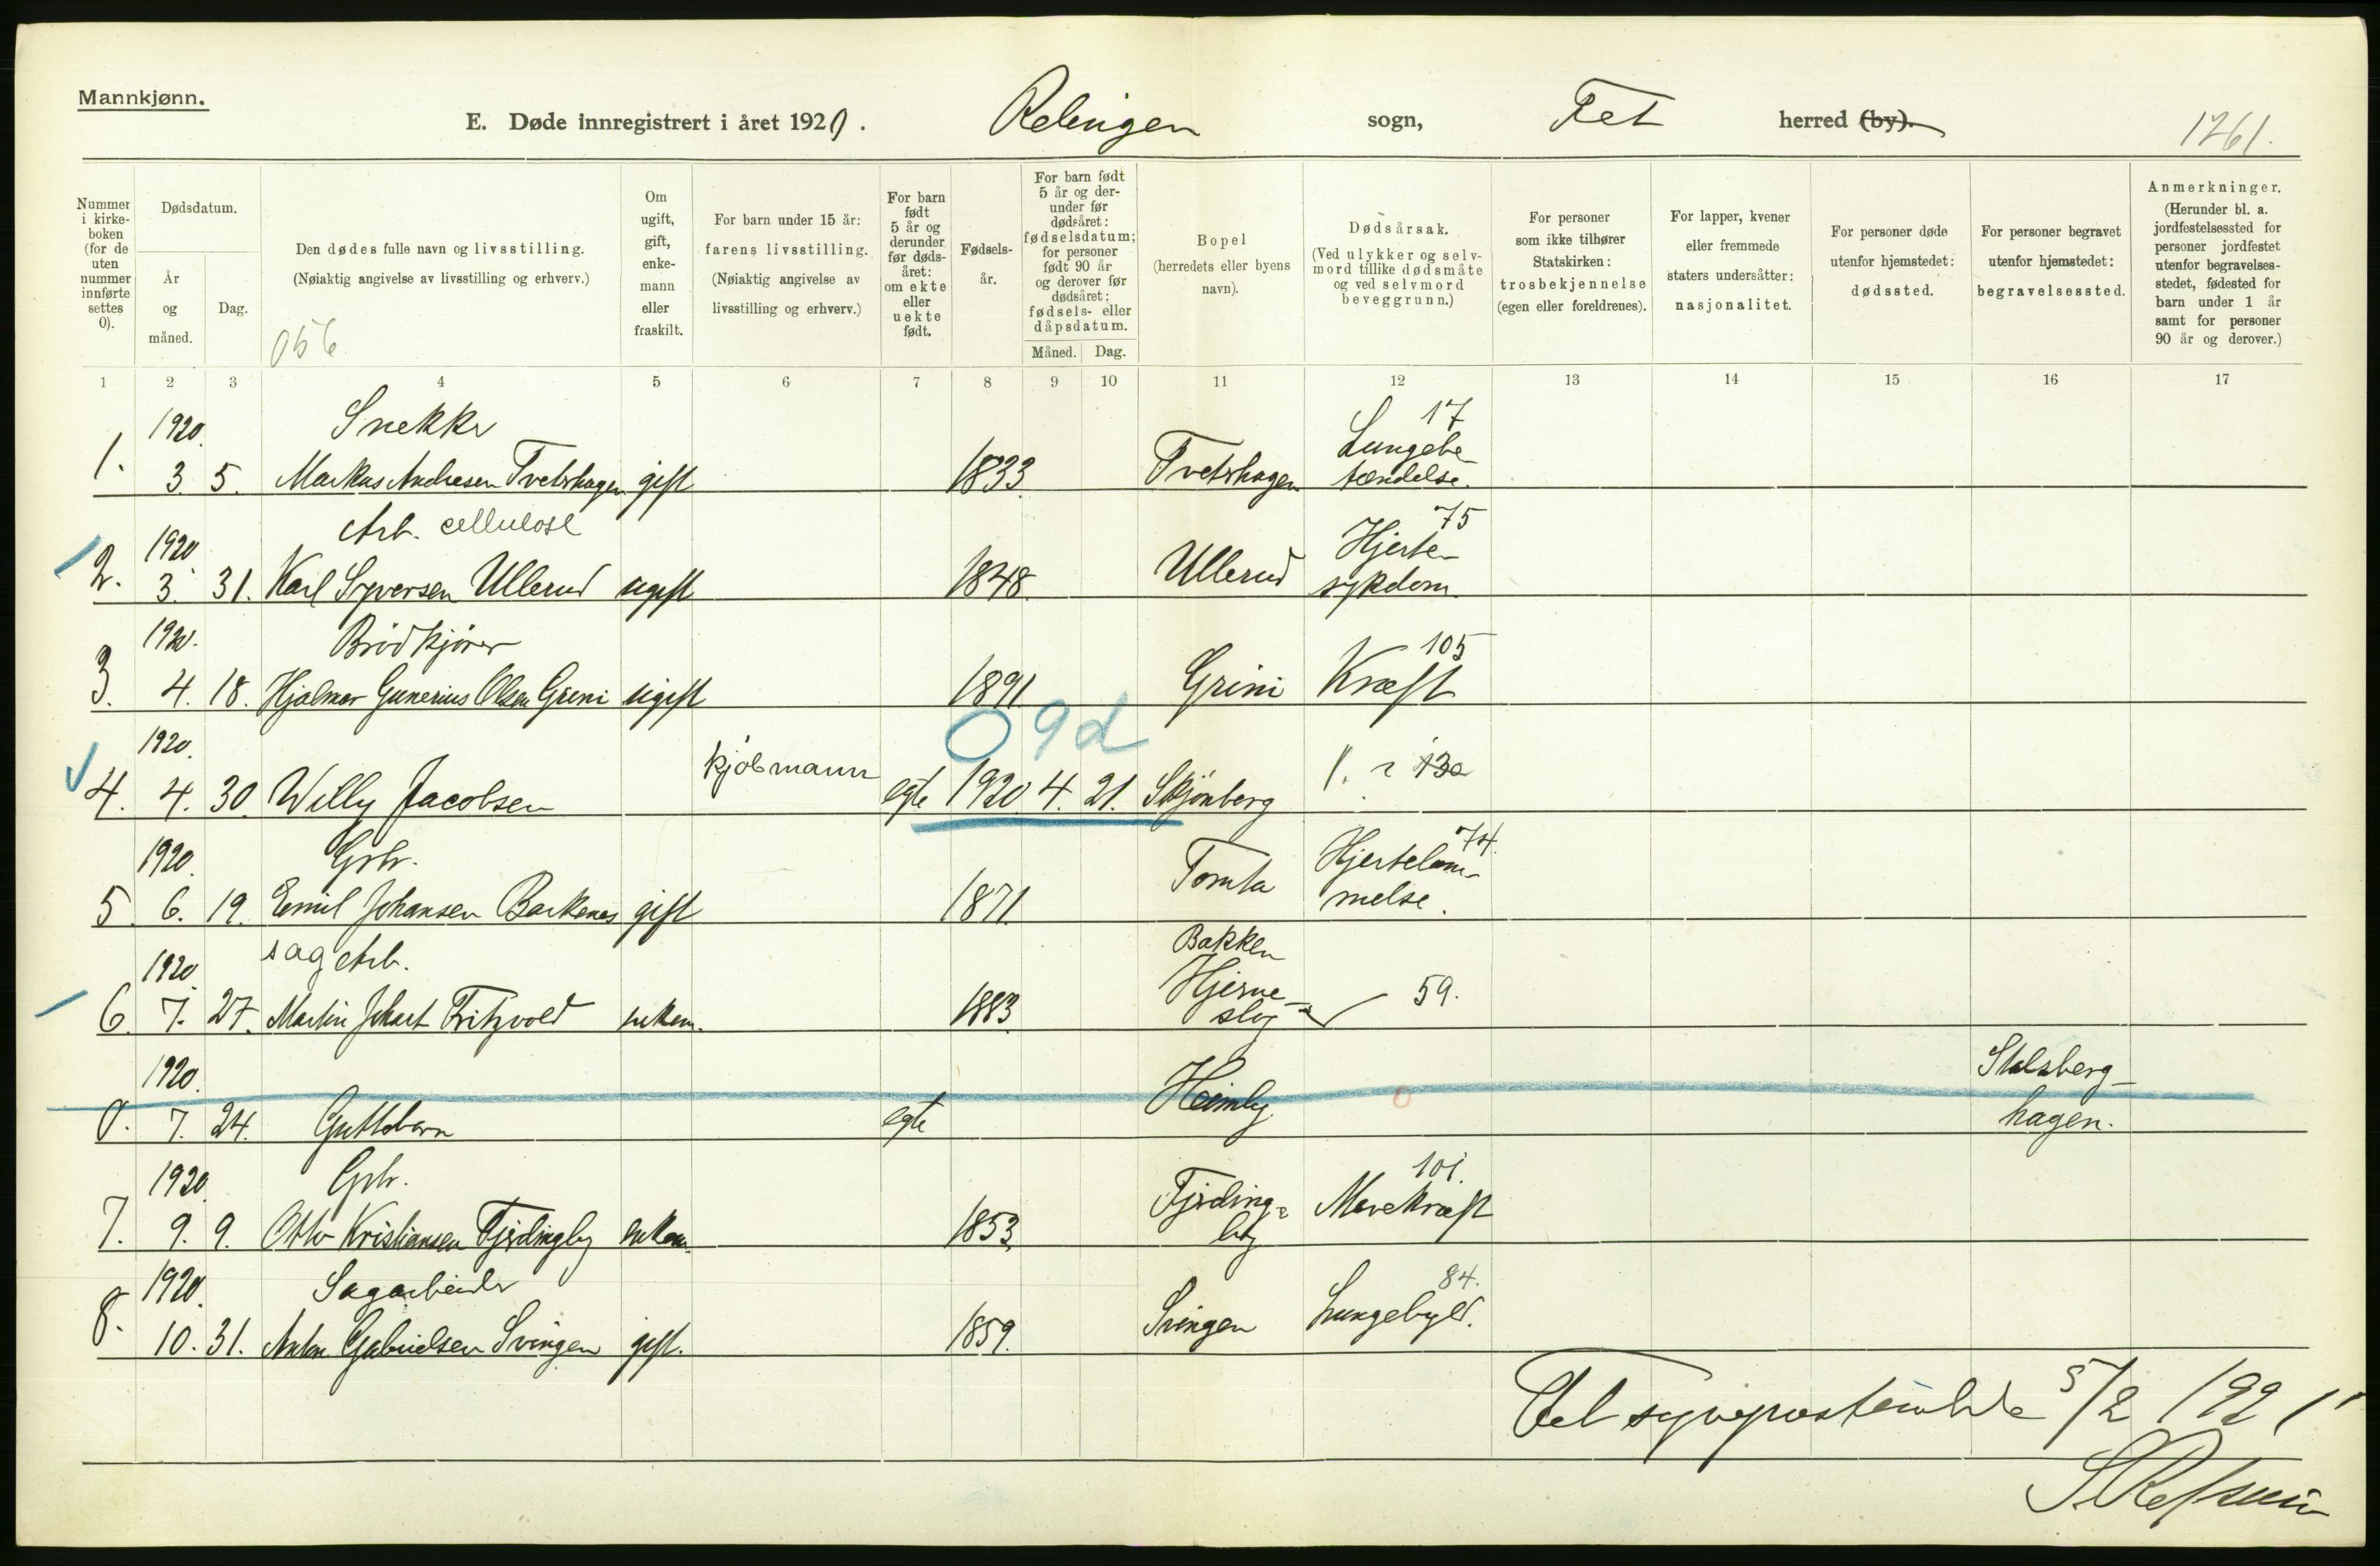 Mannkjønn.
E. Døde innregistrert i året 1920. Relingen sogn, Fet herred (by). 1261.
Nummer i kirkeboken (for de uten nummer innførte settes 0).
Dødsdatum.
År og måned.
Dag.
Den dødes fulle navn og livsstilling.
(Nøiaktig angivelse av livsstilling og erhverv.)
056
Om ugift, gift, enkemann eller fraskilt.
For barn under 15 år: farens livsstilling.
(Nøiaktig angivelse av livsstilling og erhverv.)
For barn født 5 år og derunder før dødsåret: om ekte eller uekte født.
Fødselsår.
For barn født 5 år og derunder før dødsåret: fødselsdatum; for personer født 90 år og derover før dødsåret: fødsels- eller dåpsdatum.
Måned. Dag.
Bopel
(herredets eller byens navn).
Dødsårsak.
(Ved ulykker og selvmord tillike dødsmåte og ved selvmord beveggrunn.)
For personer som ikke tilhører Statskirken: trosbekjennelse (egen eller foreldrenes).
For lapper, kvener eller fremmede staters undersåtter: nasjonalitet.
For personer døde utenfor hjemstedet: dødssted.
For personer begravet utenfor hjemstedet: begravelsessted.
Anmerkninger.
(Herunder bl. a. jordfestelsessted for personer jordfestet utenfor begravelsesstedet, fødested for barn under 1 år samt for personer 90 år og derover.)
1 2 3 4 5 6 7 8 9 10 11 12 13 14 15 16 17
1920. Snekker 17
1. 3. 5. Markus Andresen Tvetrhagen gift 1833. Tvetrhagen Lungebetændelse.
1920. Arb. cellulose 75
2. 3. 31. Karl Syversen Ullerud ugift 1848. Ullerud Hjertesykdom.
1920. Brødkjører 105
3. 4. 18. Hjalmar Gunerius Olsen Grini ugift 1891. Grini Kræft
09d
1920. kjøbmann
4. 4. 30. Willy Jacobsen egte 1920 4. 21. Skjønberg 1. ? 130
1920. Gbr. 74.
5. 6. 19. Emil Johansen Barkenes gift 1871. Tomta Hjertelammelse.
1920. sag Arb. Bakken
6. 7. 27. Martin Johart Fritzvold enkem. 1883. Hjerneslag 59.
1920.
0. 7. 24. Guttebarn egte Heimly 0 Stalsberghagen.
1920. Gbr. 101.
7. 9. 9. Otto Kristiansen Fjerdingby enkem. 1853. Fjerdingby Mavekræft
1920. Sagarbeider 84.
8. 10. 31. Anton Gabrielsen Svingen gift. 1859. Svingen Lungebyld.
Fet sogneprestembede 5/2 1921
S. Refsum